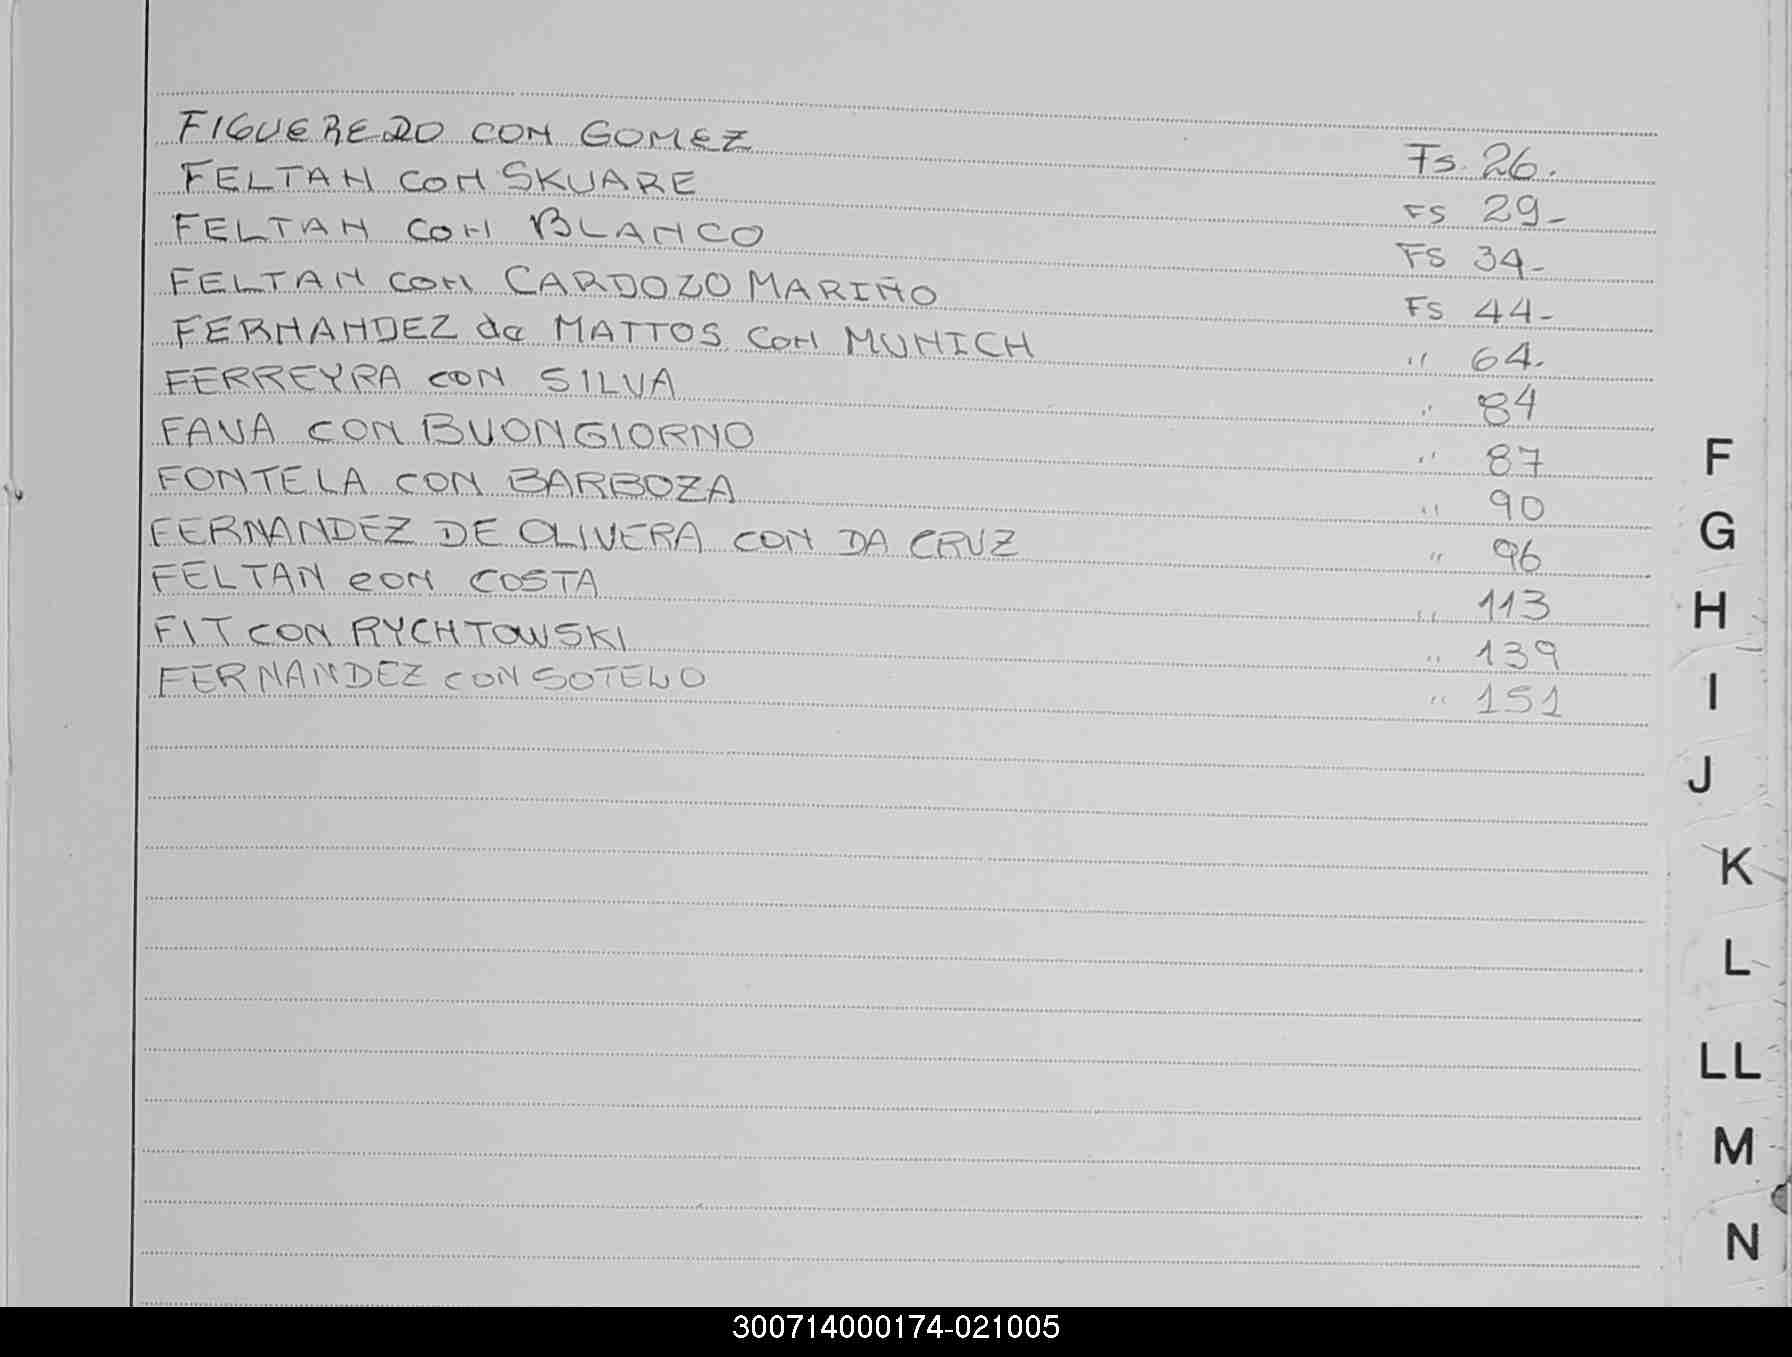 FIGUEREDO CON GOMEZ Fs. 26.
FELTAN CON SKUARE FS 29-
FELTAN CON BLANCO FS 34-
FELTAN CON CARDOZO MARIÑO FS 44-
FERNANDEZ de MATTOS CON MUNICH " 64.
FERREYRA CON SILVA " 84
FAVA CON BUONGIORNO " 87
FONTELA CON BARBOZA " 90
FERNANDEZ DE OLIVERA CON DA CRUZ " 96
FELTAN CON COSTA " 113
FIT CON RYCHTOWSKI " 139
FERNANDEZ CON SOTELO " 151
F
G
H
I
J
K
L
LL
M
N
300714000174-021005